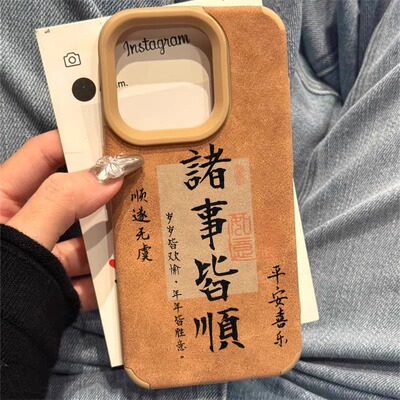 Instagram
m.
諸事皆順
顺遂无虞
岁岁皆欢愉·年年皆胜意·
平安喜乐